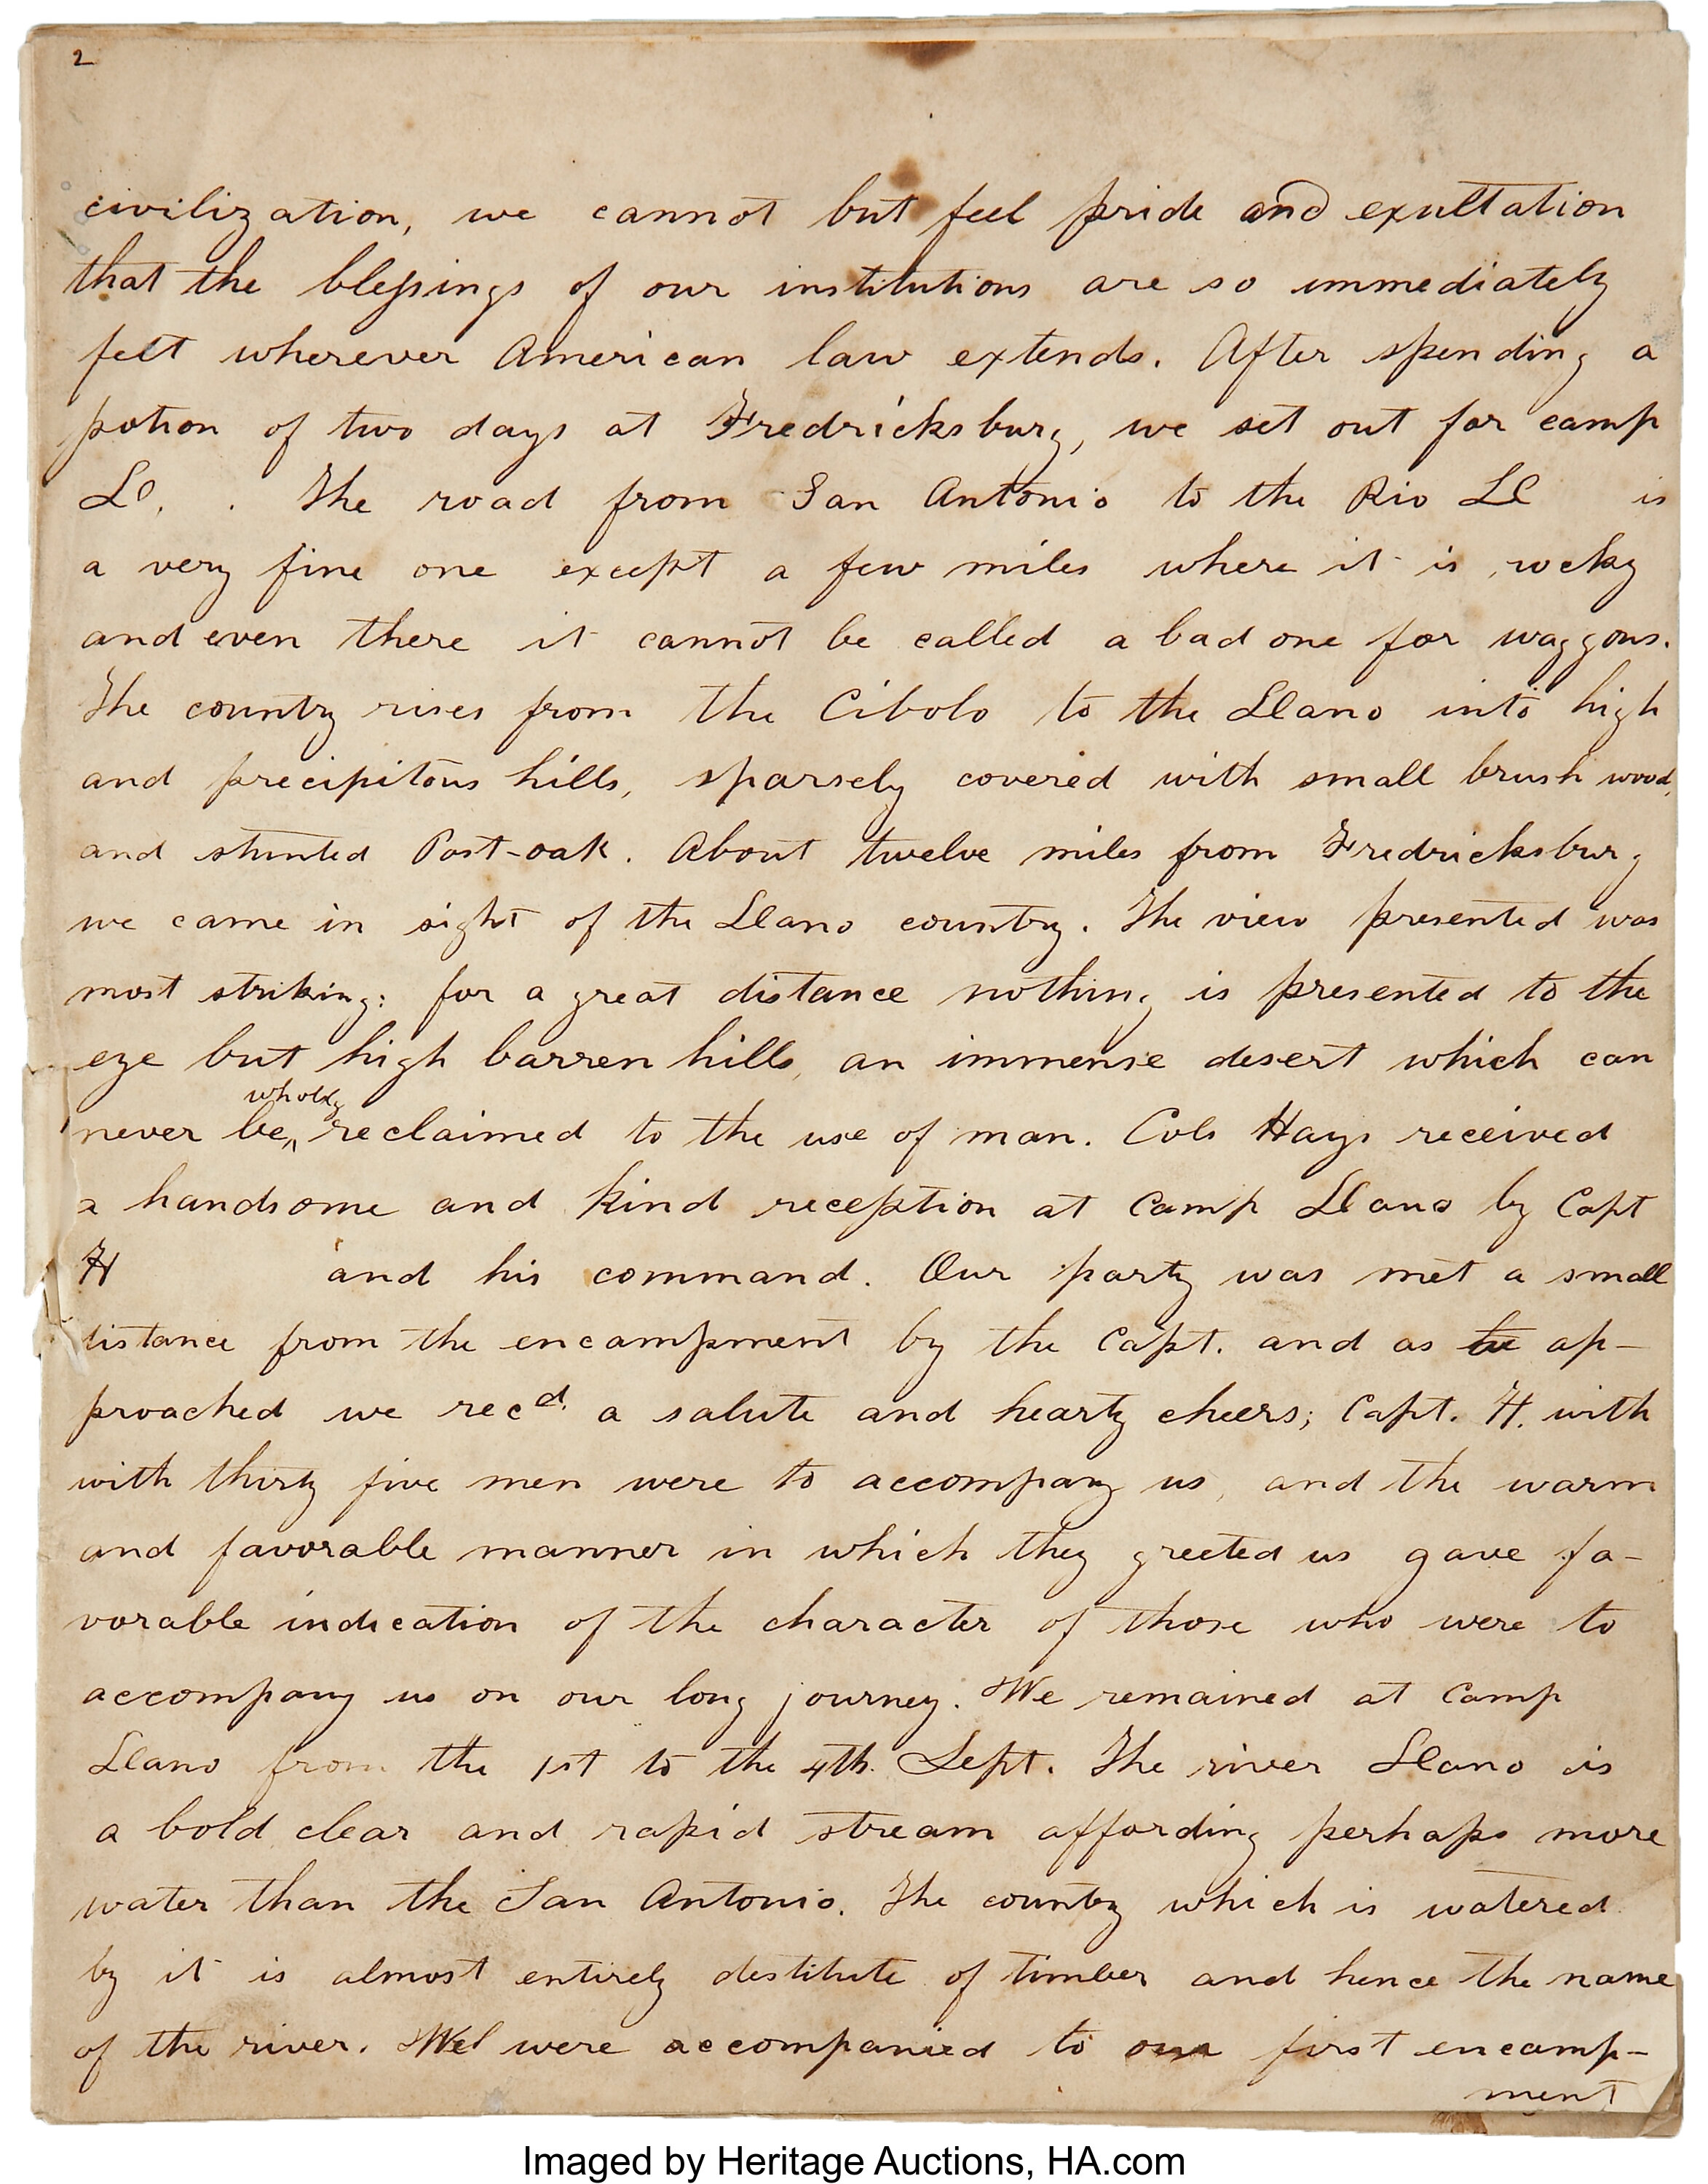 2
civilization, we cannot but feel pride and exultation
that the blessings of our institutions are so immediately
felt wherever American law extends. After spending a
potion of two days at Fredricksburg, we set out for camp
Ll. . The road from San Antonio to the Rio Ll is
a very fine one except a few miles where it is rocky
and even there it cannot be called a bad one for waggons.
The country rises from the Cibolo to the Llano into high
and precipitous hills, sparsely covered with small brush wood,
and stunted Post-oak. About twelve miles from Fredricksburg
we came in sight of the Llano country. The view presented was
most striking: for a great distance nothing is presented to the
eye but high barren hills, an immense desert which can
never be wholly reclaimed to the use of man. Cols Hays received
a handsome and kind reception at Camp Llano by Capt
H and his command. Our party was met a small
distance from the encampment by the Capt. and as ap-
proached we recd. a salute and hearty cheers; Capt. H. with
with thirty five men were to accompany us, and the warm
and favorable manner in which they greeted us gave fa-
vorable indication of the character of those who were to
accompany us on our long journey. We remained at Camp
Llano from the 1st to the 4th. Sept. The river Llano is
a bold clear and rapid stream affording perhaps more
water than the San Antonio. The country which is watered
by it is almost entirely destitute of timber and hence the name
of the river. We were accompanied to our first encamp-
ment
Imaged by Heritage Auctions, HA.com